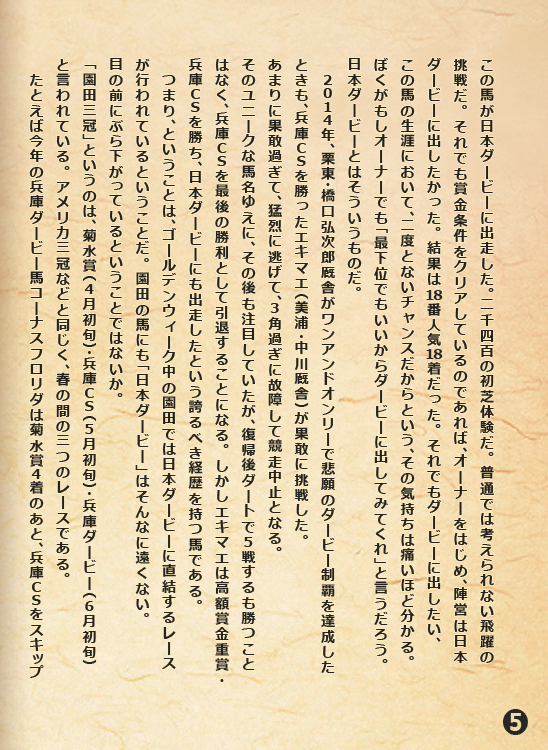 この馬が日本ダービーに出走した。二千四百の初芝体験だ。普通では考えられない飛躍の
挑戦だ。それでも賞金条件をクリアしているのであれば、オーナーをはじめ、陣営は日本
ダービーに出したかった。結果は18番人気18着だった。それでもダービーに出したい、
この馬の生涯において、二度とないチャンスだからという、その気持ちは痛いほど分かる。
ぼくがもしオーナーでも「最下位でもいいからダービーに出してみてくれ」と言うだろう。
日本ダービーとはそういうものだ。
２０１４年、栗東・橋口弘次郎厩舎がワンアンドオンリーで悲願のダービー制覇を達成した
ときも、兵庫ＣＳを勝ったエキマエ（美浦・中川厩舎）が果敢に挑戦した。
あまりに果敢過ぎて、猛烈に逃げて、３角過ぎに故障して競走中止となる。
そのユニークな馬名ゆえに、その後も注目していたが、復帰後ダートで５戦するも勝つこと
はなく、兵庫ＣＳを最後の勝利として引退することになる。しかしエキマエは高額賞金重賞・
兵庫ＣＳを勝ち、日本ダービーにも出走したという誇るべき経歴を持つ馬である。
つまり、ということは、ゴールデンウィーク中の園田では日本ダービーに直結するレース
が行われているということだ。園田の馬にも「日本ダービー」はそんなに遠くない。
目の前にぶら下がっているということではないか。
「園田三冠」というのは、菊水賞（４月初旬）・兵庫ＣＳ（５月初旬）・兵庫ダービー（６月初旬）
と言われている。アメリカ三冠などと同じく、春の間の三つのレースである。
たとえば今年の兵庫ダービー馬コーナスフロリダは菊水賞４着のあと、兵庫ＣＳをスキップ
5